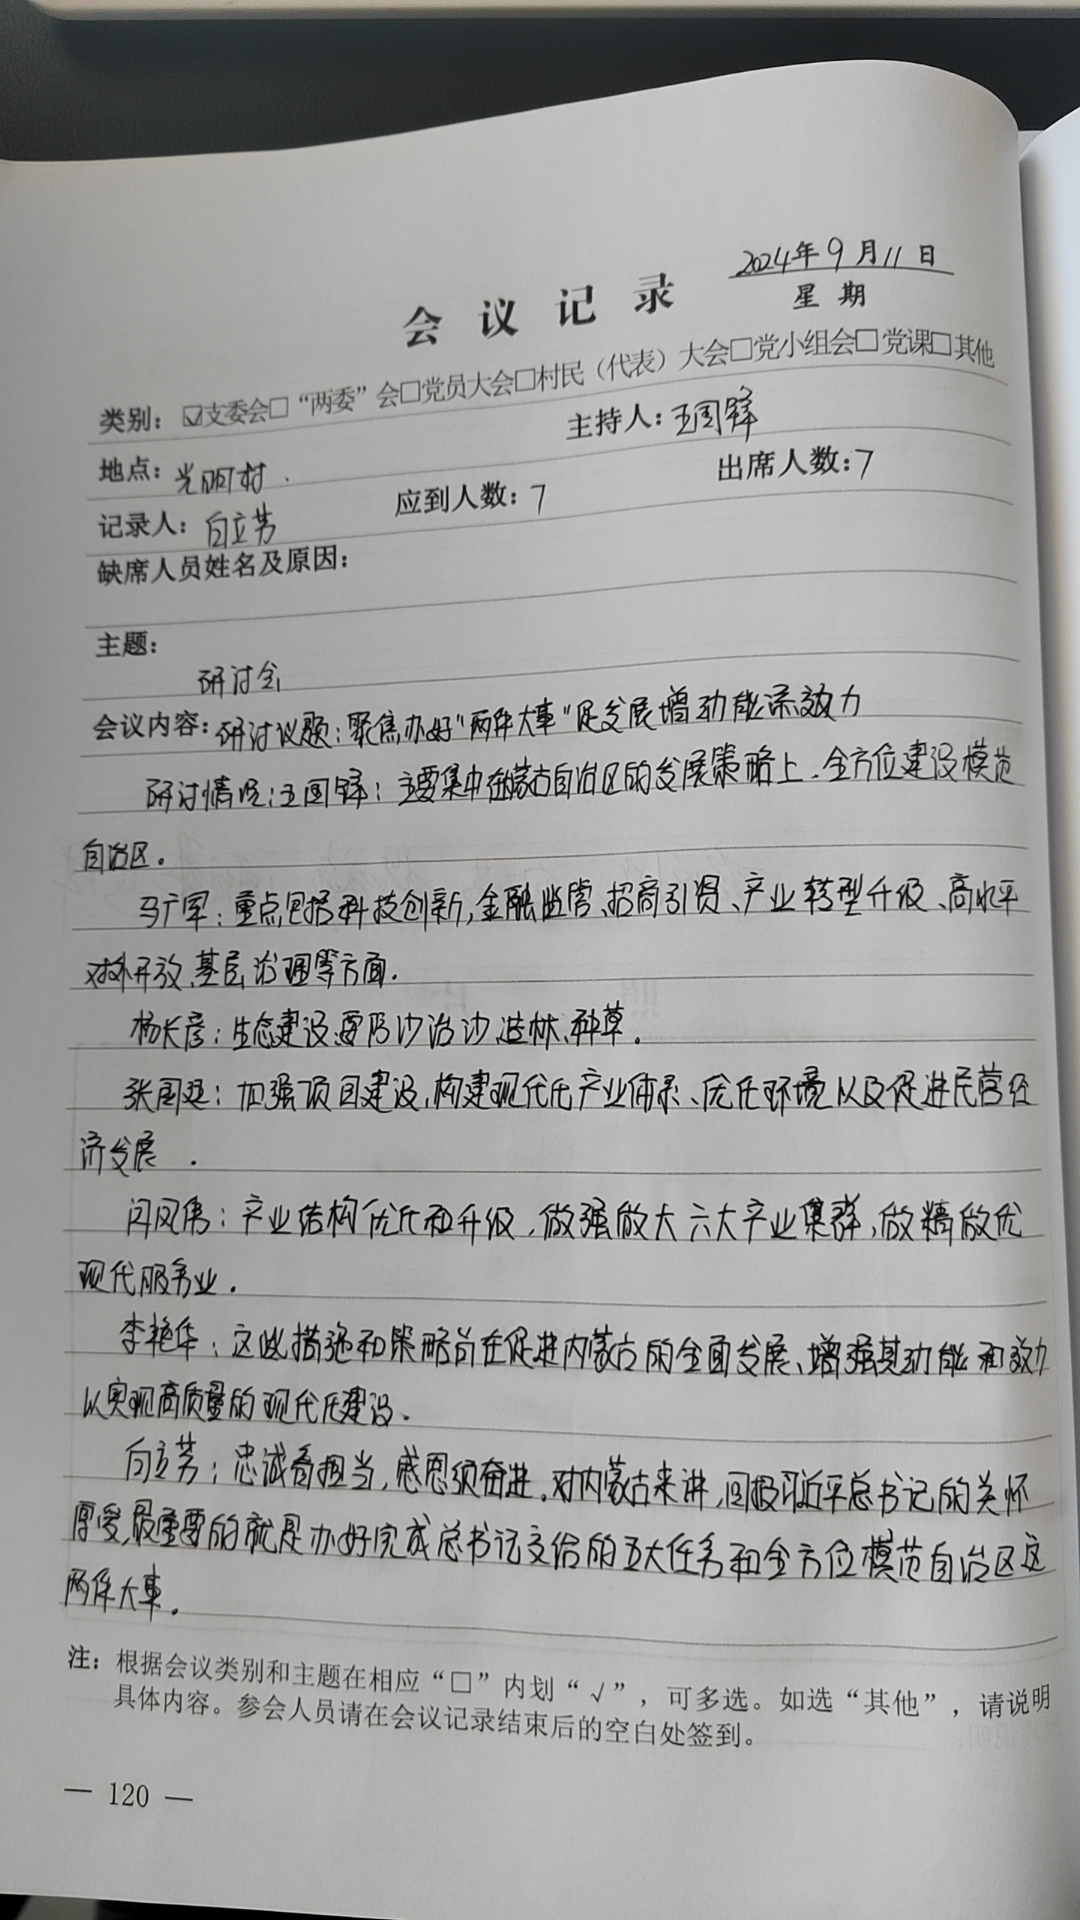 2024年9月11日
会议记录
星期
类别：☑支委会□“两委”会□党员大会□村民（代表）大会□党小组会□党课□其他
地点：光明村. 主持人：王国锋
记录人：白立芳 应到人数：7 出席人数：7
缺席人员姓名及原因：
主题：
研讨会
会议内容：研讨议题：聚焦办好“两件大事”促发展增动能添效力
研讨情况：王国锋：主要集中在内蒙古自治区的发展策略上.全方位建设模范
自治区.
马广军：重点包括科技创新,金融监管、招商引资、产业转型升级、高水平
对外开放、基层治理等方面.
杨长彦：生态建设,要防沙治沙,造林、种草.
张国廷：加强项目建设,构建现代化产业体系、优化环境以及促进民营经
济发展.
闫凤伟：产业结构优化和升级,做强做大六大产业集群,做精做优
现代服务业.
李艳华：这些措施和策略旨在促进内蒙古的全面发展、增强其动能和效力
以实现高质量的现代化建设.
白立芳：忠诚看担当,感恩须奋进.对内蒙古来讲,回报习近平总书记的关怀
厚爱,最重要的就是办好完成总书记交给的五大任务和全方位模范自治区这
两件大事.
注：根据会议类别和主题在相应“□”内划“√”，可多选。如选“其他”，请说明
具体内容。参会人员请在会议记录结束后的空白处签到。
— 120 —